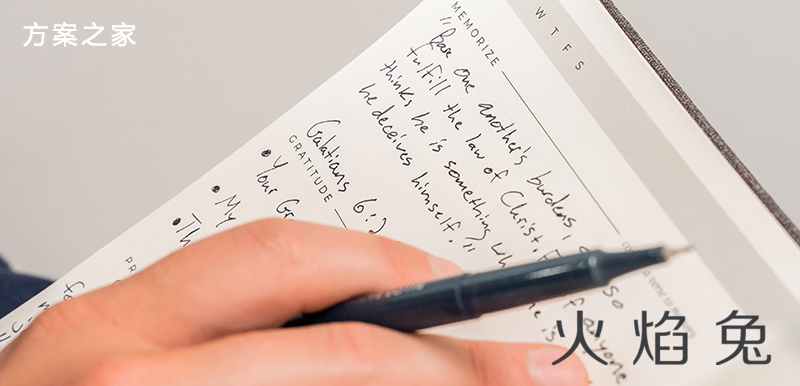 方案之家
W T F S
MEMORIZE
"Bear one another's burdens,
fulfill the law of Christ. so
thinks he is something, anyone
he deceives himself."
Galatians 6:2
GRATITUDE
• Your Gr
• My
• Th
PR
火焰兔